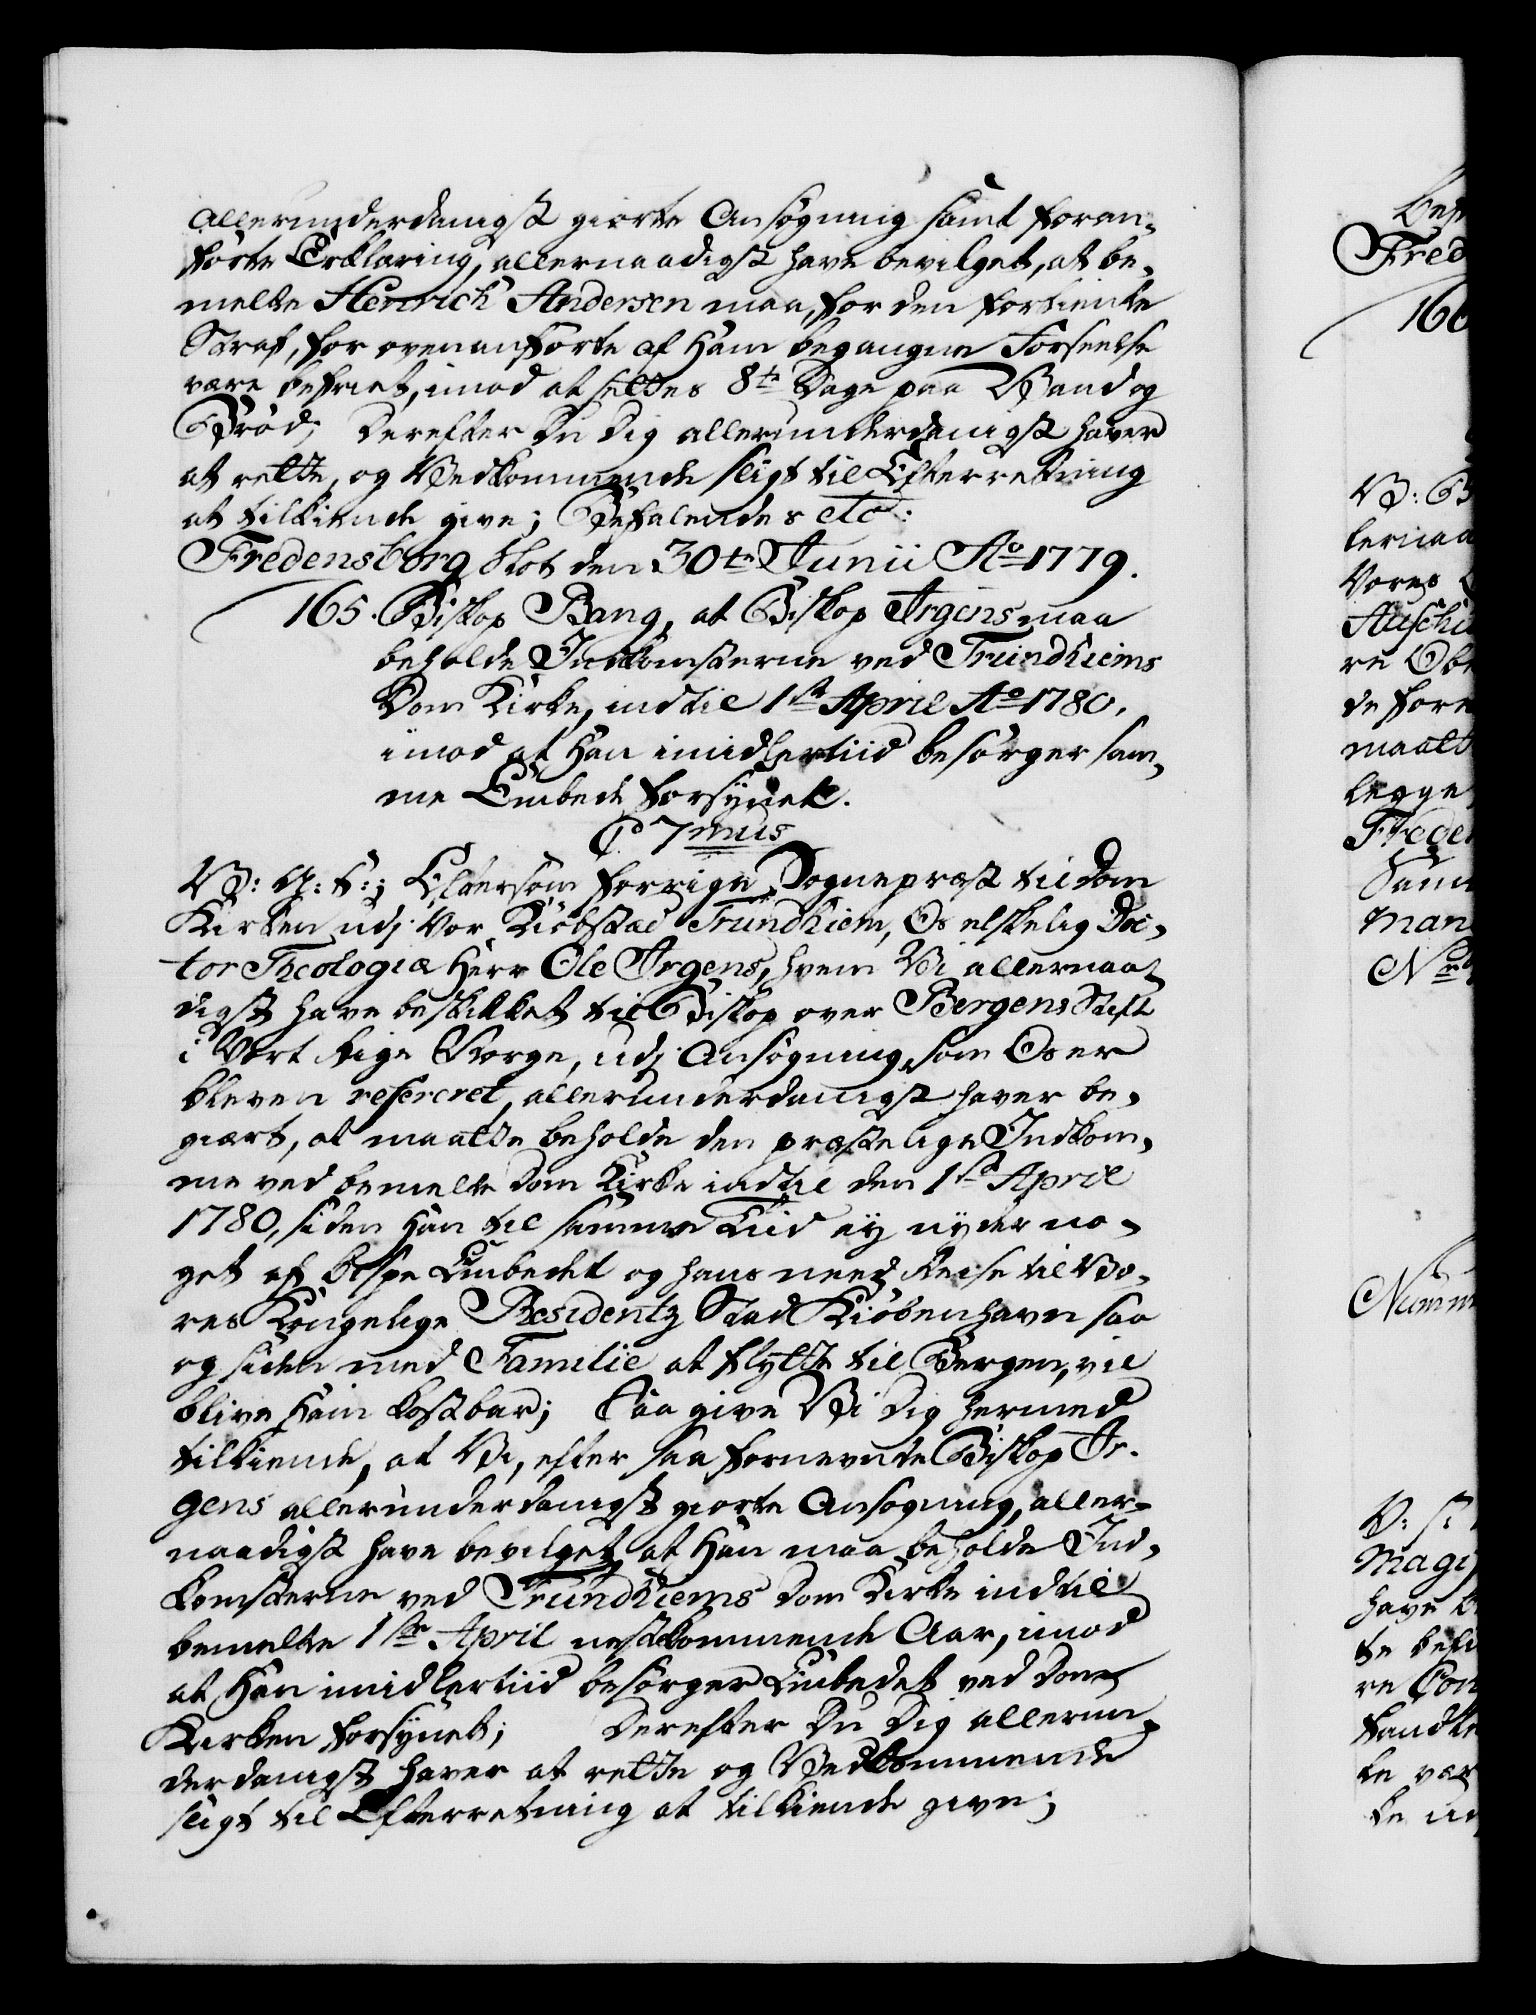 allerunderdanigst giorte Ansøgning samt foran¬
førte Erklæring, allernaadigst have bevilget, at be¬
melte Henrich Andersen maa, for den fortiente
Straf, for ovenanførte af Ham begangne Forseelse
være befriet, imod at settes 8te Dage paa Vand og
Brød; Derefter Du Dig allerunderdanigst haver
at rette, og Vedkommende sligt til Efterretning
at tilkiende give; Befalendes etc:
Fredensborg Slot den 30te Junii Ao 1779.
165. Biskop Bang, at Biskop Irgens maa
beholde Indkomsterne ved Trundhiems
Dom Kirke, indtil 1ste April Ao 1780.
imod at Han imidlertiid besørger sam¬
me Embede forsynet.
C 7mus
V: G: T:; Eftersom forrige Sognepræst til Dom
Kirken udj Vor Kiøbstad Trundhiem, Os elskelig Doc¬
tor Theologiæ Herr Ole Irgens, hvem Vi allernaa¬
digst have beskikket til Biskop over Bergens Stift
i Vort Rige Norge, udj Ansøgning, som Os er
bleven refereret, allerunderdanigst haver be¬
giært, at maatte beholde den præstelige Indkom¬
me ved bemelte Dom Kirke indtil den 1ste April
1780, siden Han til samme Tiid ey nyder no¬
get af Bispe Embedet og hans need Reise til Vo¬
res Kongelige Residentz Stad Kiøbenhavn saa
og siden med Familie at flytte til Bergen, vil
blive Ham kostbar; Saa give Vi Dig hermed
tilkiende, at Vi, efter saa fornevnte Biskop Ir¬
gens allerunderdanigst giorte Ansøgning, aller¬
naadigst have bevilget, at Han maa beholde Ind¬
komsterne ved Trundhiems Dom Kirke indtil
bemelte 1ste April nestkommende Aar, imod
at Han imidlertiid besørger Embedet ved Dom
Kirken forsynet; Derefter Du Dig allerun¬
derdanigst haver at rette og Vedkommende
sligt til Efterretning at tilkiende give;